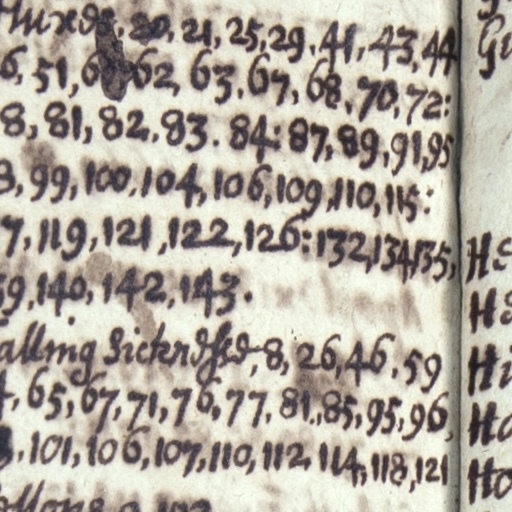 fluxes, 20, 21, 25, 29, 41, 43, 44
6, 51, 62, 63, 67, 68, 70, 72:
8, 81, 82, 83. 84: 87, 89, 91, 95
8, 99, 100, 104, 106, 109, 110, 115:
7, 119, 121, 122, 126: 132, 134, 135,
59, 140, 142, 143.
alling Sicknesse, 8, 26, 46, 59
4, 65, 67, 71, 76, 77, 81, 85, 95, 96,
101, 106, 107, 110, 112, 114, 118, 121